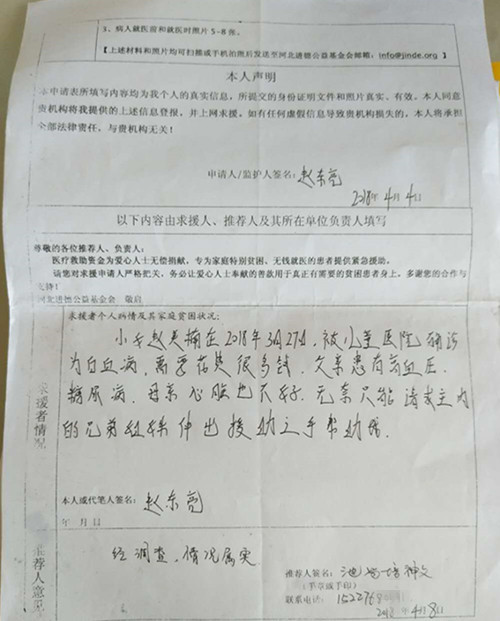 3、病人就医前和就医时照片 5-8 张。
【上述材料和照片均可扫描或手机拍照后发送至河北进德公益基金会邮箱：info@jinde.org】
本人声明
本申请表所填写内容均为我个人的真实信息，所提交的身份证明文件和照片真实、有效。本人同意
贵机构将我提供的上述信息登报，并上网求援。如有任何虚假信息导致贵机构损失的，本人将承担
全部法律责任，与贵机构无关！
申请人/监护人签名：赵东亮
2018年4月4日
以下内容由求援人、推荐人及其所在单位负责人填写
尊敬的各位推荐人、负责人：
医疗救助资金为爱心人士无偿捐献，专为家庭特别贫困、无钱就医的患者提供紧急援助。
请您对求援申请人严格把关，务必让爱心人士奉献的善款用于真正有需要的贫困患者身上，多谢您的合作与
支持！
河北进德公益基金会 敬启
求援者情况
求援者个人病情及其家庭贫困状况：
小女赵美楠在2018年3月27日，被儿童医院确诊
为白血病，需要花费很多钱，父亲患有高血压
糖尿病，母亲心脏也不好。无奈只能请求主内
的兄弟姐妹伸出援助之手帮助
本人或代笔人签名：赵东亮
年 月 日
推荐人意见
经调查，情况属实
推荐人签名：
（手章或手印）
联系电话：1522769
4月8日